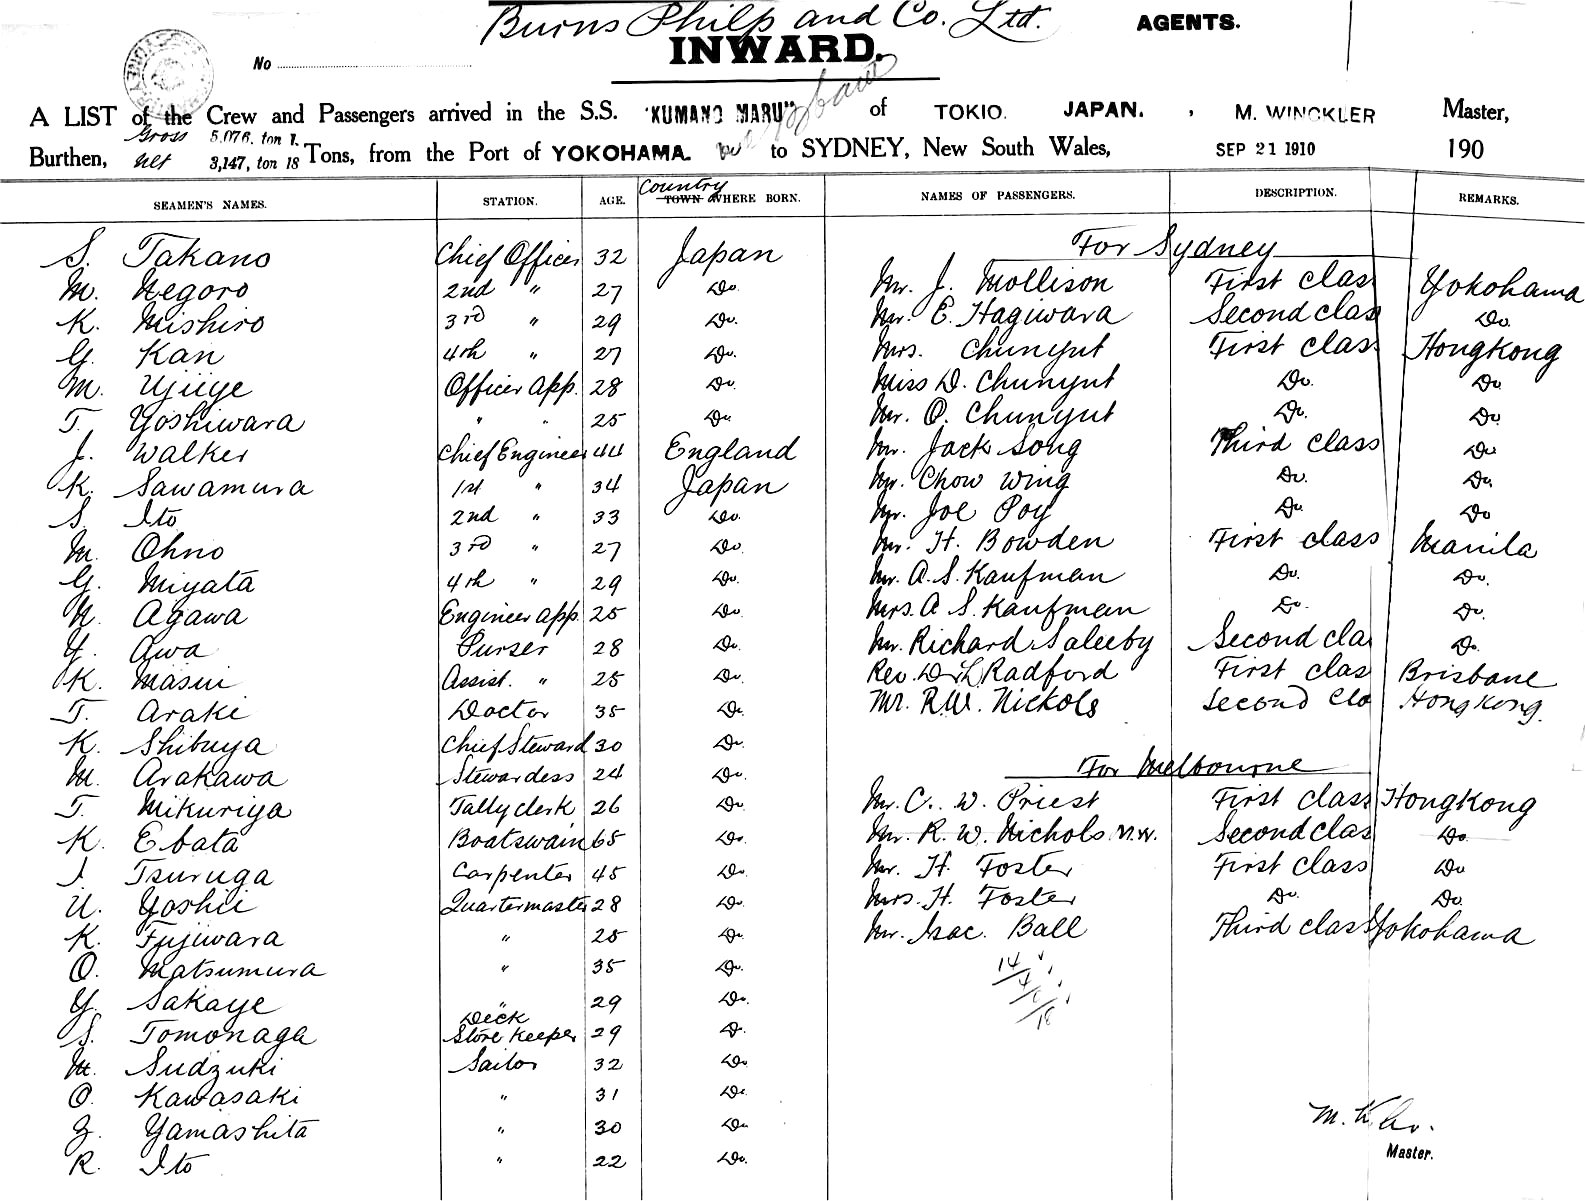 Burns Philp and Co. Ltd. AGENTS.
INWARD.
No
A LIST of the Crew and Passengers arrived in the S.S. "KUMANO MARU" of TOKIO. JAPAN. , M. WINCKLER Master,
Burthen, Gross 5,076. ton 1.
Net 3,147, ton 18 Tons, from the Port of YOKOHAMA. to SYDNEY, New South Wales, SEP 21 1910 190
SEAMEN'S NAMES. STATION. AGE. Country TOWN WHERE BORN. NAMES OF PASSENGERS. DESCRIPTION. REMARKS.
For Sydney
S. Takano Chief Officer 32 Japan
M. Negoro 2nd " 27 Do. Mr. J. Mollison First class Yokohama
K. Mishiro 3rd " 29 Do. Mr. E. Hagiwara Second class Do.
G. Kan 4th " 27 Do. Mrs. Chunyut First class Hongkong
M. Ujiiye Officer app. 28 Do. Miss D. Chunyut Do. Do.
T. Yoshiwara " " 25 Do. Mr. O. Chunyut Do. Do
J. Walker Chief Engineer 44 England Mr. Jack Song Third class Do
K. Sawamura 1st " 34 Japan Mr. Chow Wing Do. Do.
S. Ito 2nd " 33 Do. Mr. Joe Poy Do. Do
M. Ohno 3rd " 27 Do. Mr. H. Bowden First class Manila
G. Miyata 4th " 29 Do. Mr. A. S. Kaufman Do. Do.
N. Agawa Engineer app. 25 Do. Mrs. A. S. Kaufman Do. Do.
Y. Awa Purser 28 Do. Mr. Richard Saleeby Second cla Do.
K. Masui Assist. " 25 Do. Rev. D. L. Radford First clas Brisbane
T. Araki Doctor 35 Do. Mr. R.W. Nickols Second cla Hongkong.
K. Shibuya Chief Steward 30 Do.
M. Arakawa Stewardess 24 Do. For Melbourne
T. Mikuriya Tally clerk 26 Do. Mr. C. W. Priest First class Hongkong
K. Ebata Boatswain 65 Do. Mr. R. W. Nichols Second clas Do
I. Tsuruga Carpenter 45 Do. Mr. H. Foster First class Do
U. Yoshii Quartermaster 28 Do. Mrs. H. Foster Do. Do.
K. Fujiwara " 25 Do. Mr. Isac. Ball Third class Yokohama
O. Matsumura " 35 Do. 14
Y. Sakaye " 29 Do. 18
S. Tomonaga Deck Store Keeper 29 D.
M. Sudzuki Sailor 32 Do.
O. Kawasaki " 31 Do.
Z. Yamashita " 30 Do.
R. Ito " 22 Do.
Master.